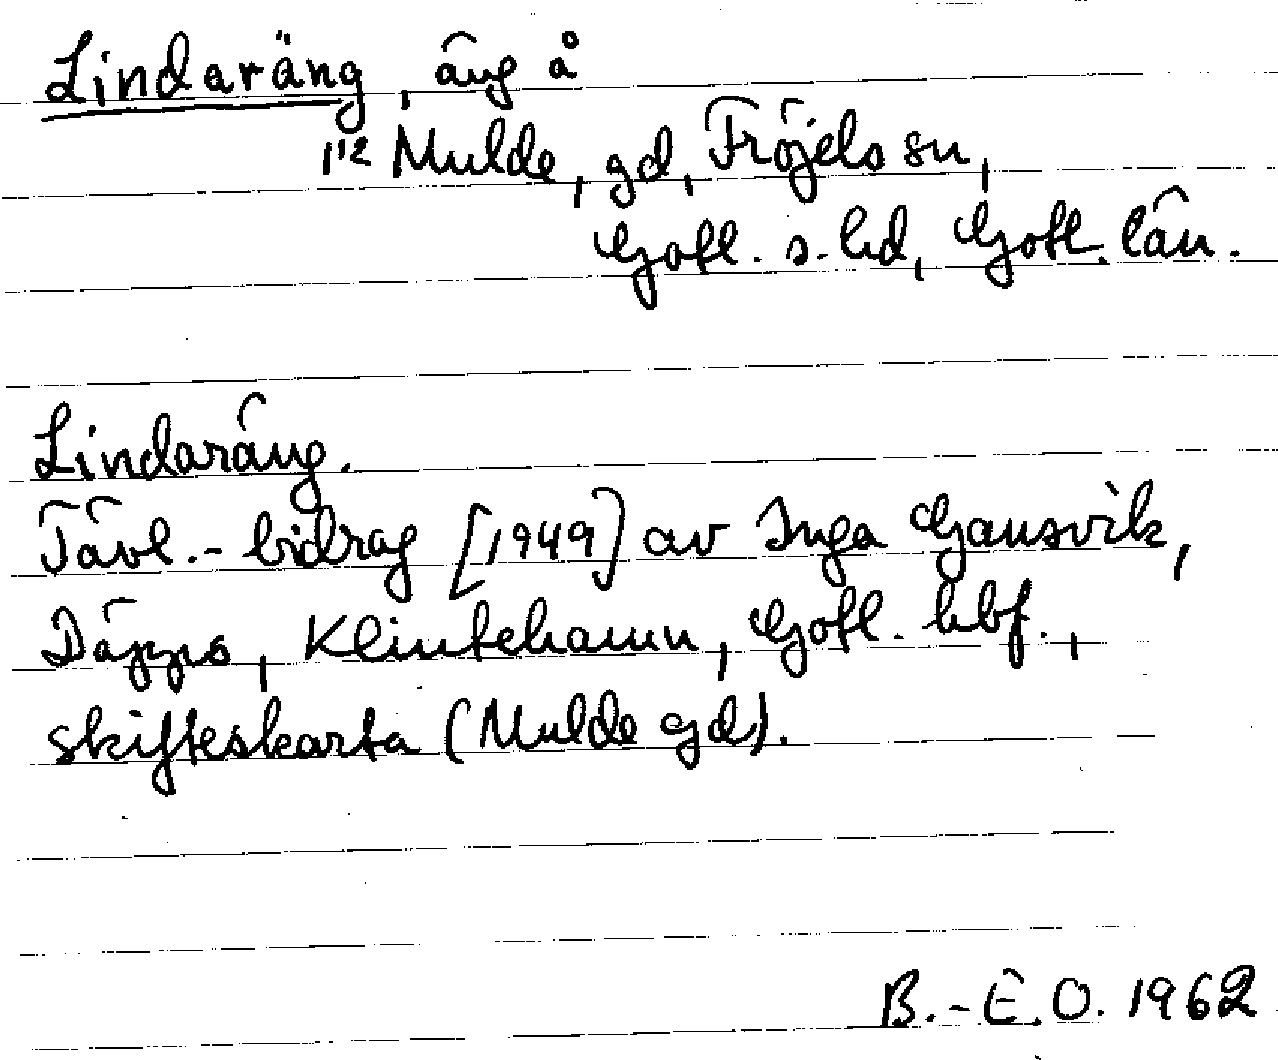 Lindaräng, äng å
1¹² Mulde, gd, Fröjels sn,
Gotl. s. hd, Gotl. län.
Lindaräng.
Tävl.-bidrag [1949] av Inga Gansvik,
Däpps, Klintehamn, Gotl. hbf.,
skifteskarta (Mulde gd).
B.-E.O. 1962